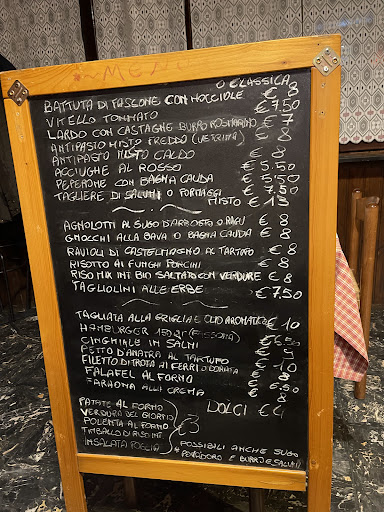 MENU
O CLASSICA
BATTUTA DI FASSONE CON NOCCIOLE € 8
VITELLO TONNATO € 7.50
LARDO CON CASTAGNE BURRO ROSMARINO € 7
ANTIPASTO MISTO FREDDO (VETRINA) € 8
ANTIPASTO MISTO CALDO € 8
ACCIUGHE AL ROSSO € 5.50
PEPERONE CON BAGNA CAUDA € 5.50
TAGLIERE DI SALUMI O FORMAGGI € 7.50
MISTO € 13
AGNOLOTTI AL SUGO D'ARROSTO O RAGU € 8
GNOCCHI ALLA BAVA O BAGNA CAUDA € 8
RAVIOLI DI CASTELMAGNO AL TARTUFO € 8
RISOTTO AI FUNGHI PORCINI € 8
RISO MIX INT BIO SALTATO CON VERDURE € 8
TAGLIOLINI ALLE ERBE € 7.50
TAGLIATA ALLA GRIGLIA E OLIO AROMATICO € 10
HAMBURGER 150gr (FASSONA) € 6.50
CINGHIALE IN SALMI € 9
PETTO D'ANATRA AL TARTUFO € 10
FILETTO DI TROTA AI FERRI O DORATA € 8
FALAFEL AL FORNO € 6.50
FARAONA ALLA CREMA € 8
PATATE AL FORNO
DOLCI € 4
VERDURA DEL GIORNO
POLENTA AL FORNO 3
TIMBALLO DI RISO
INSALATA FOGLIA
* POSSIBILI ANCHE SUGO
POMODORO E BURRO E SALVIA